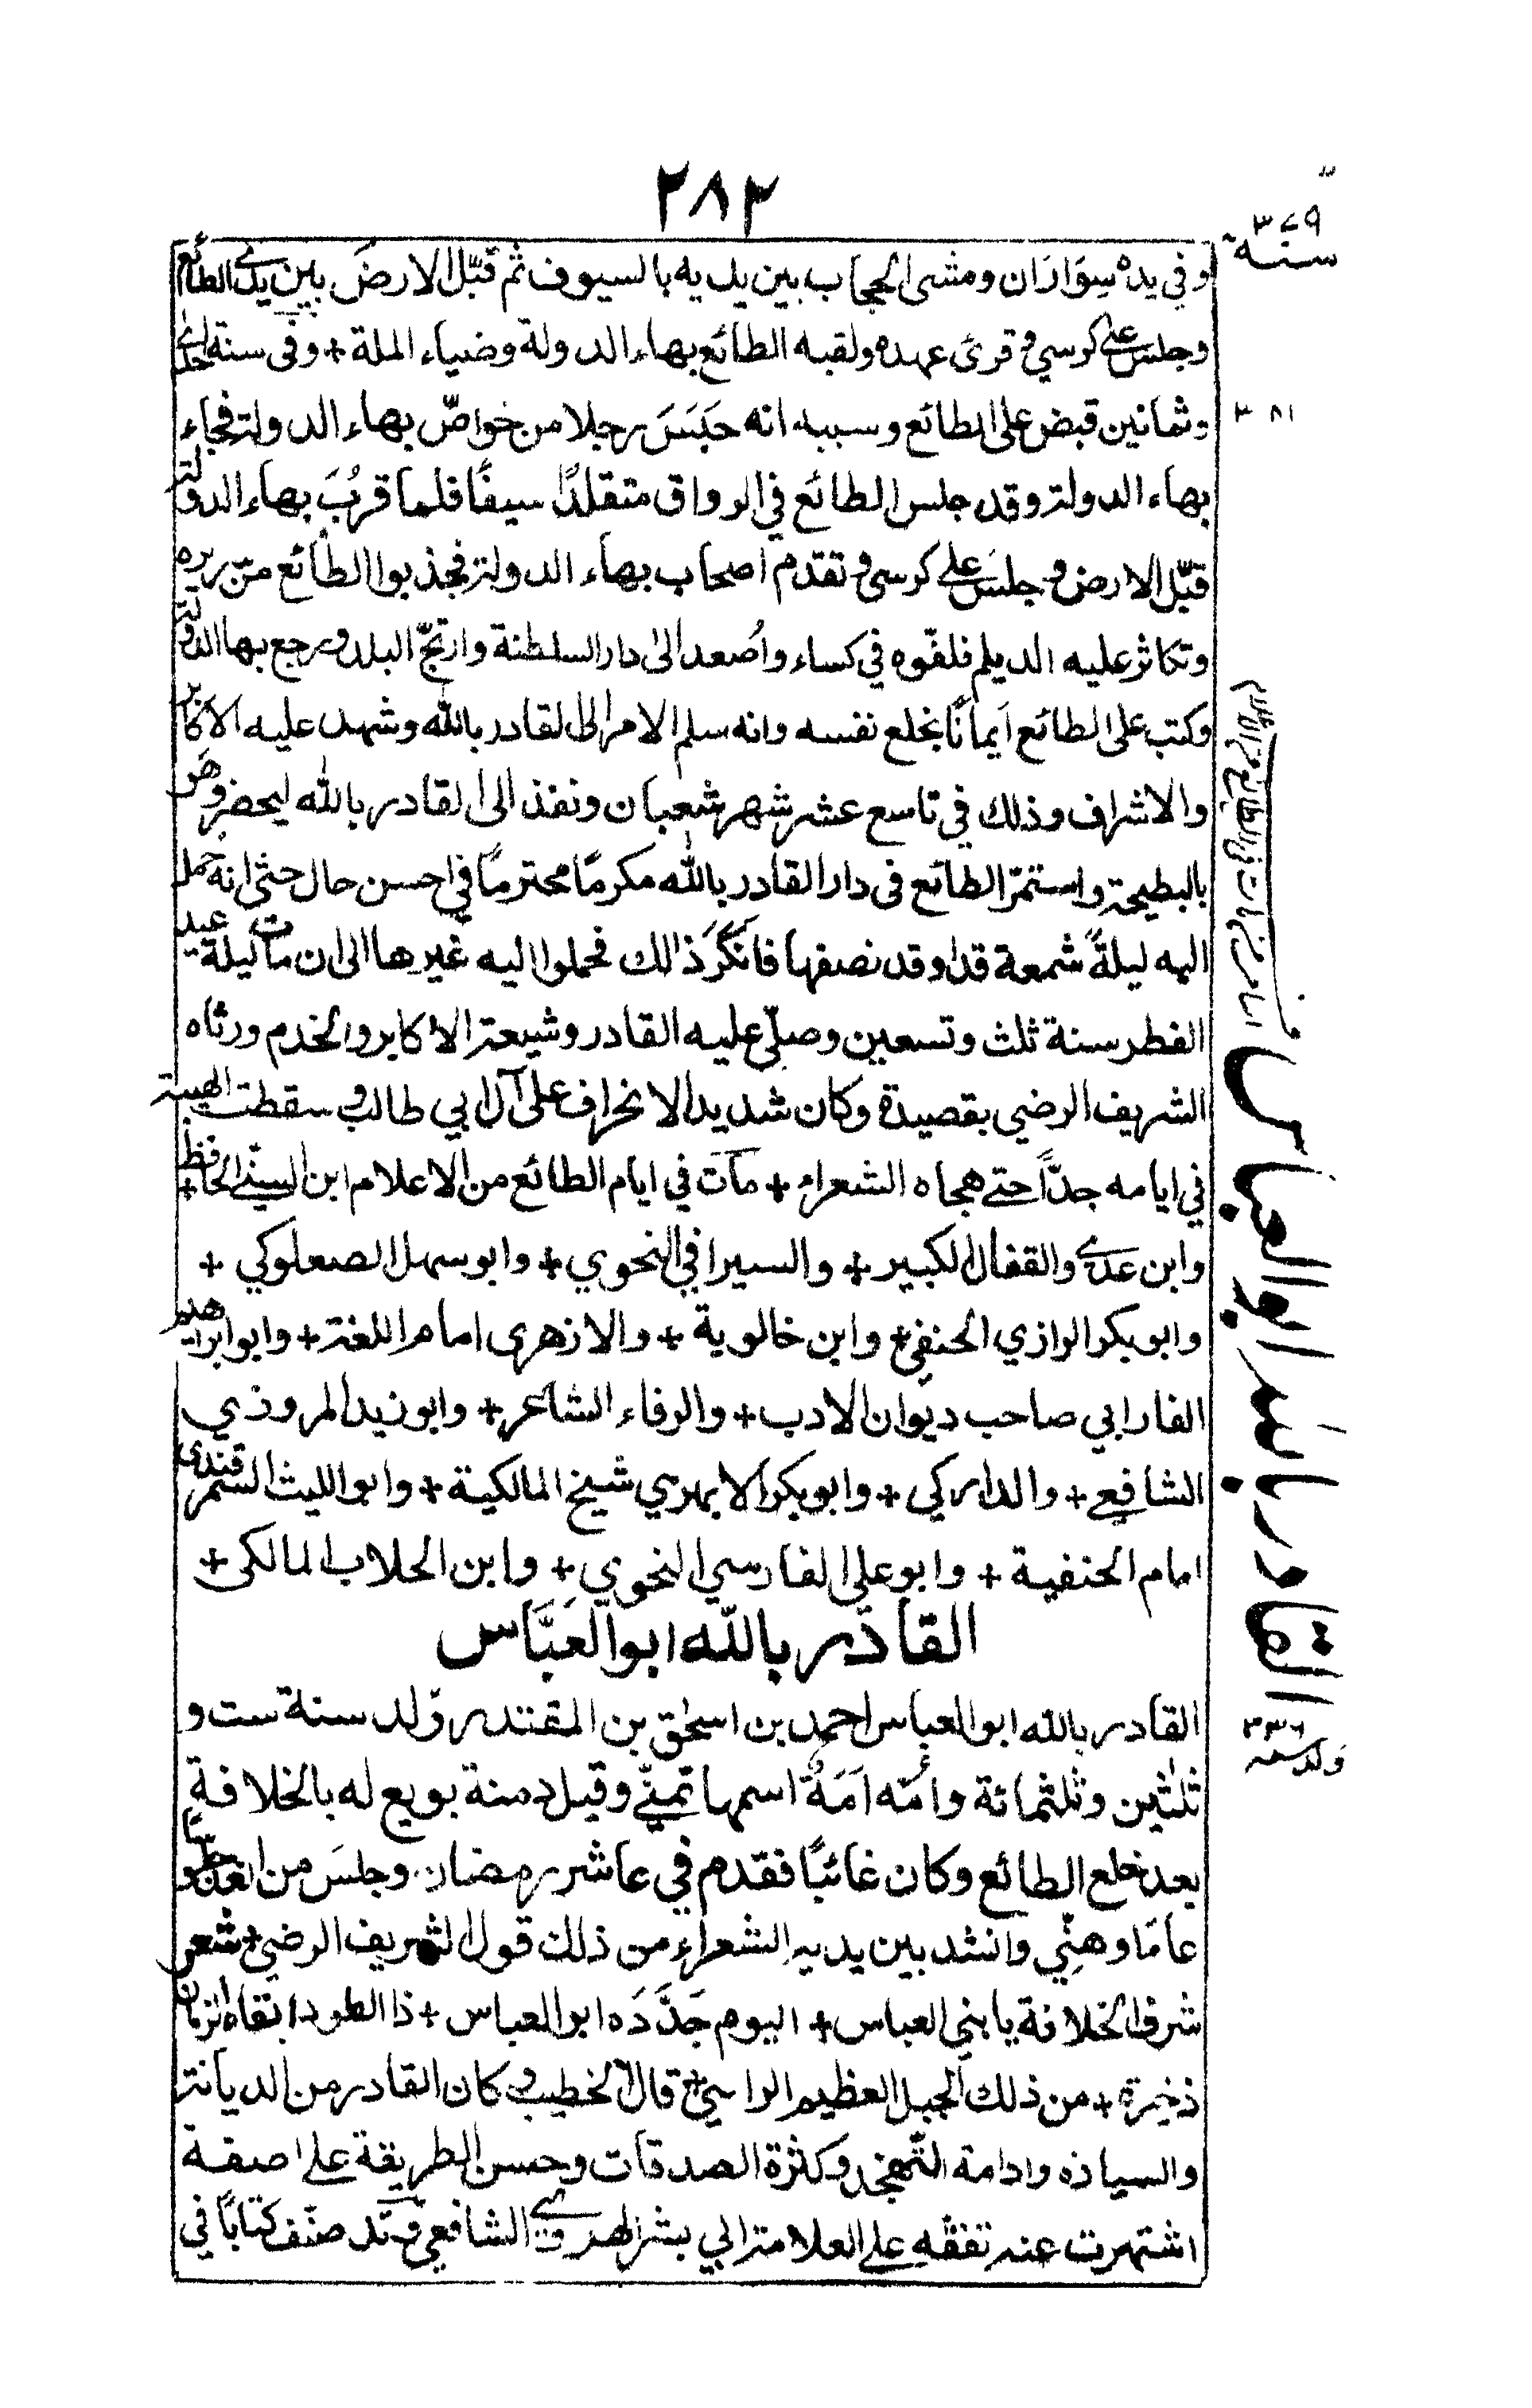 ٢٨٢
سنة ٣٧٩
وفي يده سِوَارَان ومشى الحجاب بين يديه بالسيوف ثم قبّل الارضَ بين يدي الطائع
وجلس على كرسي و قرئ عهده ولقبه الطائع بهاء الدولة وضياء الملة + وفى سنة احدى
وثمانين قبض على الطائع وسببه انه حَبَسَ رجلا من خواصّ بهاء الدولة فجاء
٣٨١
بهاء الدولة وقد جلس الطائع في الرواق متقلدًا سيفًا فلما قرُبَ بهاء الدولة
قبّل الارض و جلسَ على كرسي و تقدم اصحاب بهاء الدولة فجذبوا الطائع من سريره
وتكاثر عليه الديلم فلفّوه في كساء واُصعد الى دار السلطنة وارتجّ البلد و رجع بهاالدولة
وكتب على الطائع اَيمانًا بخلع نفسه وانه سلم الامر الى القادر بالله وشهد عليه الاكابر
والاشراف وذلك في تاسع عشر شهر شعبان ونفذ الى القادر بالله ليحضر وهو
بالبطيحة واستمرّ الطائع فى دار القادر بالله مكرمًا محترمًا في احسن حال حتى انه حمل
اليه ليلةً شمعة قد اوقد نصفها فانكَرَ ذالك فحملوا اليه غيرها الى ان مات ليلة عيد
الفطر سنة ثلث وتسعين وصلّى عليه القادر وشيعته الاكابر والخدم ورثاه
الشريف الرضي بقصيدة وكان شديد الانحراف على آل ابي طالب و سقطت الهيبة
في ايامه جدّاً حتے هجاه الشعراء + مات في ايام الطائع من الاعلام ابن السني الحافظ +
وابن عدے والقفال الكبير + والسيرافي النحوي + وابو سهل الصعلوكي +
وابو بكر الرازي الحنفي + وابن خالوية + والازهرى امام اللغة + وابو ابراهيم
الفارابي صاحب ديوان الادب + والرفاء الشاعر + وابو زيد المروزي
الشافعے + والداركي + وابو بكر الابهري شيخ المالكية + وابو الليث السمرقندى
امام الحنفية + وابو على الفارسي النحوي + وابن الجلاب المالكى +
القادر بالله ابو العَبَّاس
القادر بالله ابو العباس
القادر بالله ابو العباس احمد بن اسحٰق بن المقتدر وُلد سنة ست و
ولد سنه ٣٣٦
ثلثين وثلثمائة وأمّه اَمَةٌ اسمها تمنّے وقيل دمنة بويع له بالخلافة
بعد خلع الطائع وكان غائبًا فقدم في عاشر رمضان وجلسَ من الغد جلوسًا
عامًا وهنّي وانشد بين يديه الشعراء من ذلك قول الشريف الرضي + شعر
شرف الخلافة يا بني العباس + اليوم جَدَّدَه ابو العباس + ذا الطود ابقاه الزمان
ذخيرة + من ذلك الجبل العظيم الراسي + قال الخطيب و كان القادر من الديانة
والسياده وادامة التهجد وكثرة الصدقات وحسن الطريقة على صفة
اشتهرت عنه تفقّه على العلامة ابي بشر الهروي الشافعي و قد صنف كتابًا في